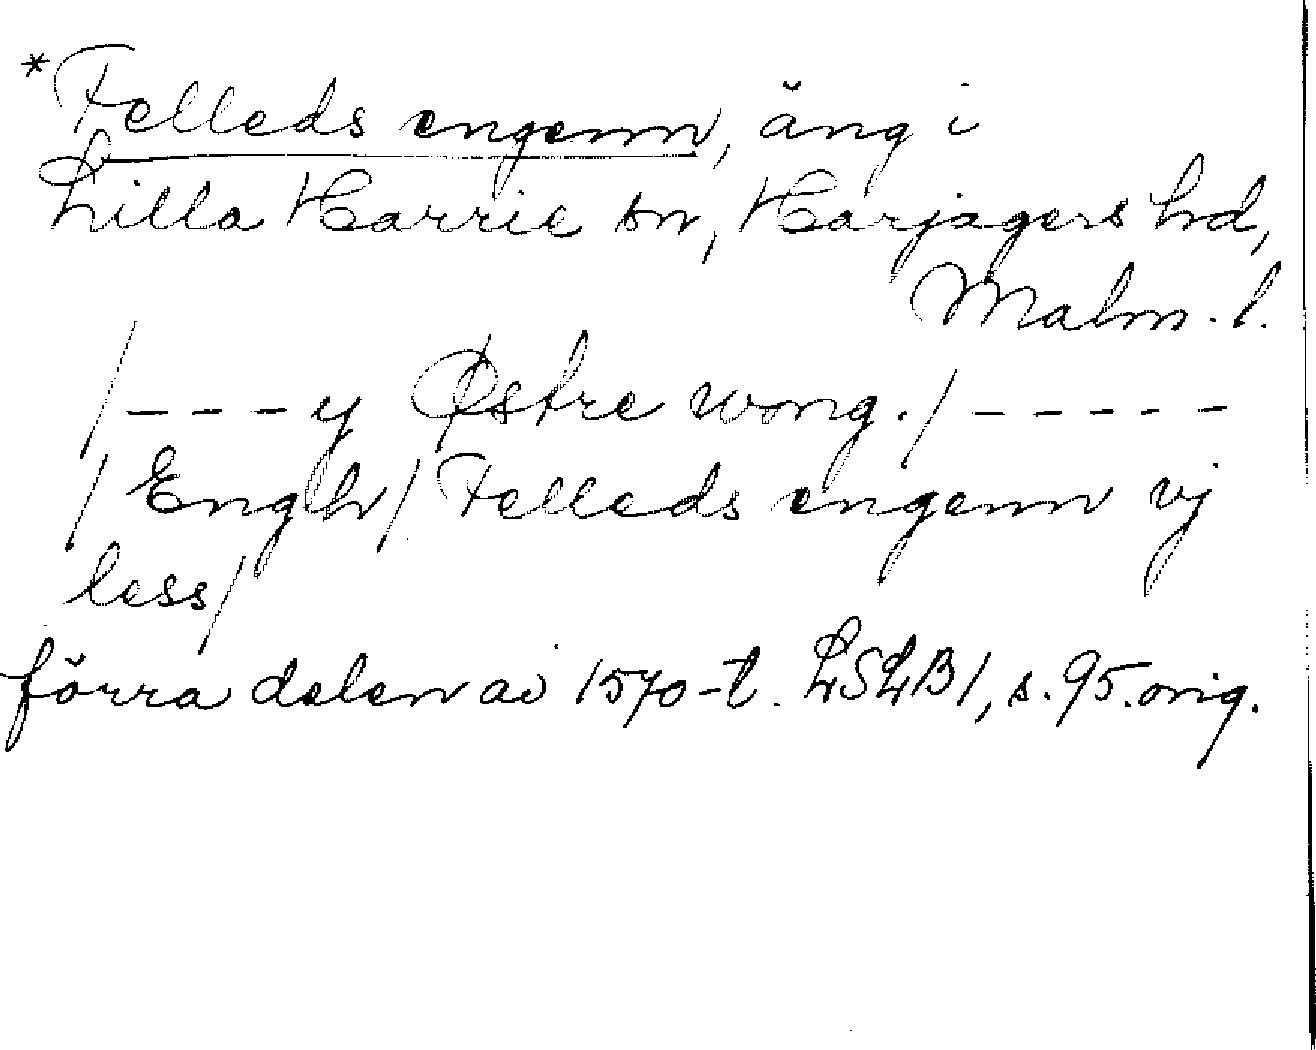 *Felleds engenn, äng i
Lilla Harrie sn, Harjagers hd,
Malm. l.
/ - - - y Østre wong. / - - - - -
/ Engh / Felleds engenn vj
less /
förra delen av 1570-t. LSLB 1, s. 95. orig.